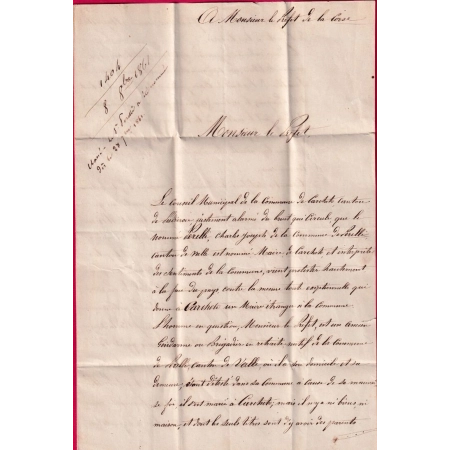 A Monsieur le Préfet de la Corse
1404
8 8bre 1861
Monsieur le Préfet,
Le Conseil Municipal de la Commune de Carcheto canton
de justement alarmé du bruit qui circule que le
nommé Charles Joseph de la Commune de
canton de Valle est nommé Maire de Carcheto et interprète
des sentiments de la commune, vient protester hautement
à la face du pays contre la mesure toute exceptionnelle qui
donne à Carcheto un Maire étranger à la Commune
L'homme en question, Monsieur le Préfet, est un ancien
Gendarme ou Brigadier en retraite natif de la Commune
de canton de Valle, où il a son domicile et sa
demeure, dans sa Commune à cause de sa mauvaise
foi il s'est marié à Carcheto, mais il n'y a ni biens, ni
maison, et dont les seuls titres sont d'y avoir des parents